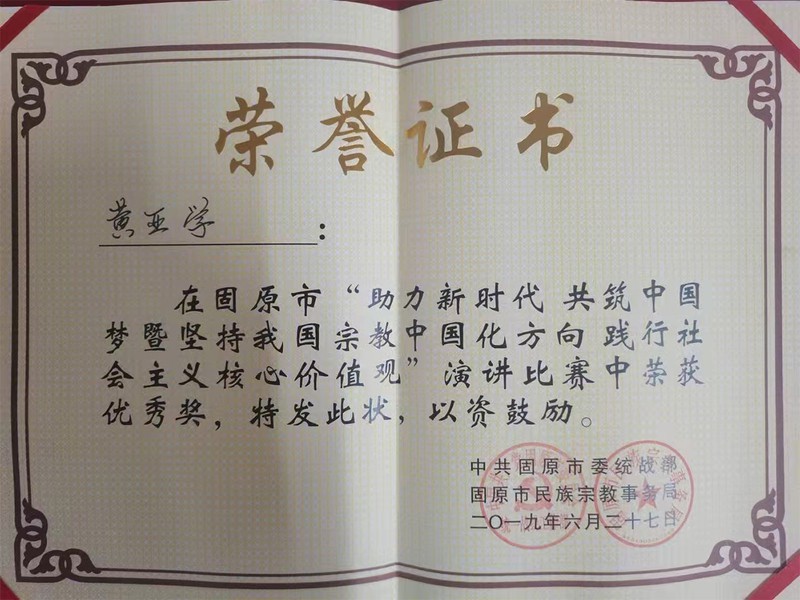 荣誉证书
黄亚学：
在固原市“助力新时代 共筑中国
梦暨坚持我国宗教中国化方向 践行社
会主义核心价值观”演讲比赛中荣获
优秀奖，特发此状，以资鼓励。
中共固原市委统战部
固原市民族宗教事务局
二〇一九年六月二十七日